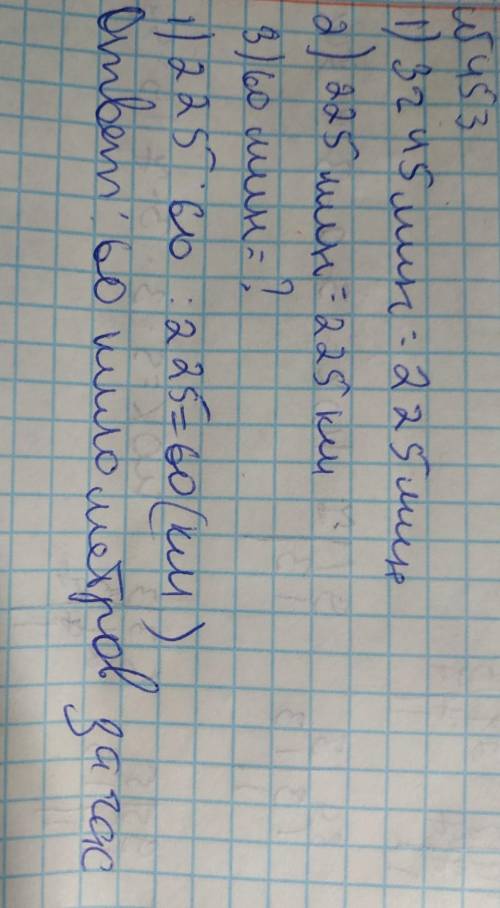 № 453
1) 3ч 45 мин = 225 мин
2) 225 мин = 225 км
3) 60 мин = ?
1) 225 · 60 : 225 = 60 (км)
Ответ: 60 километров за час